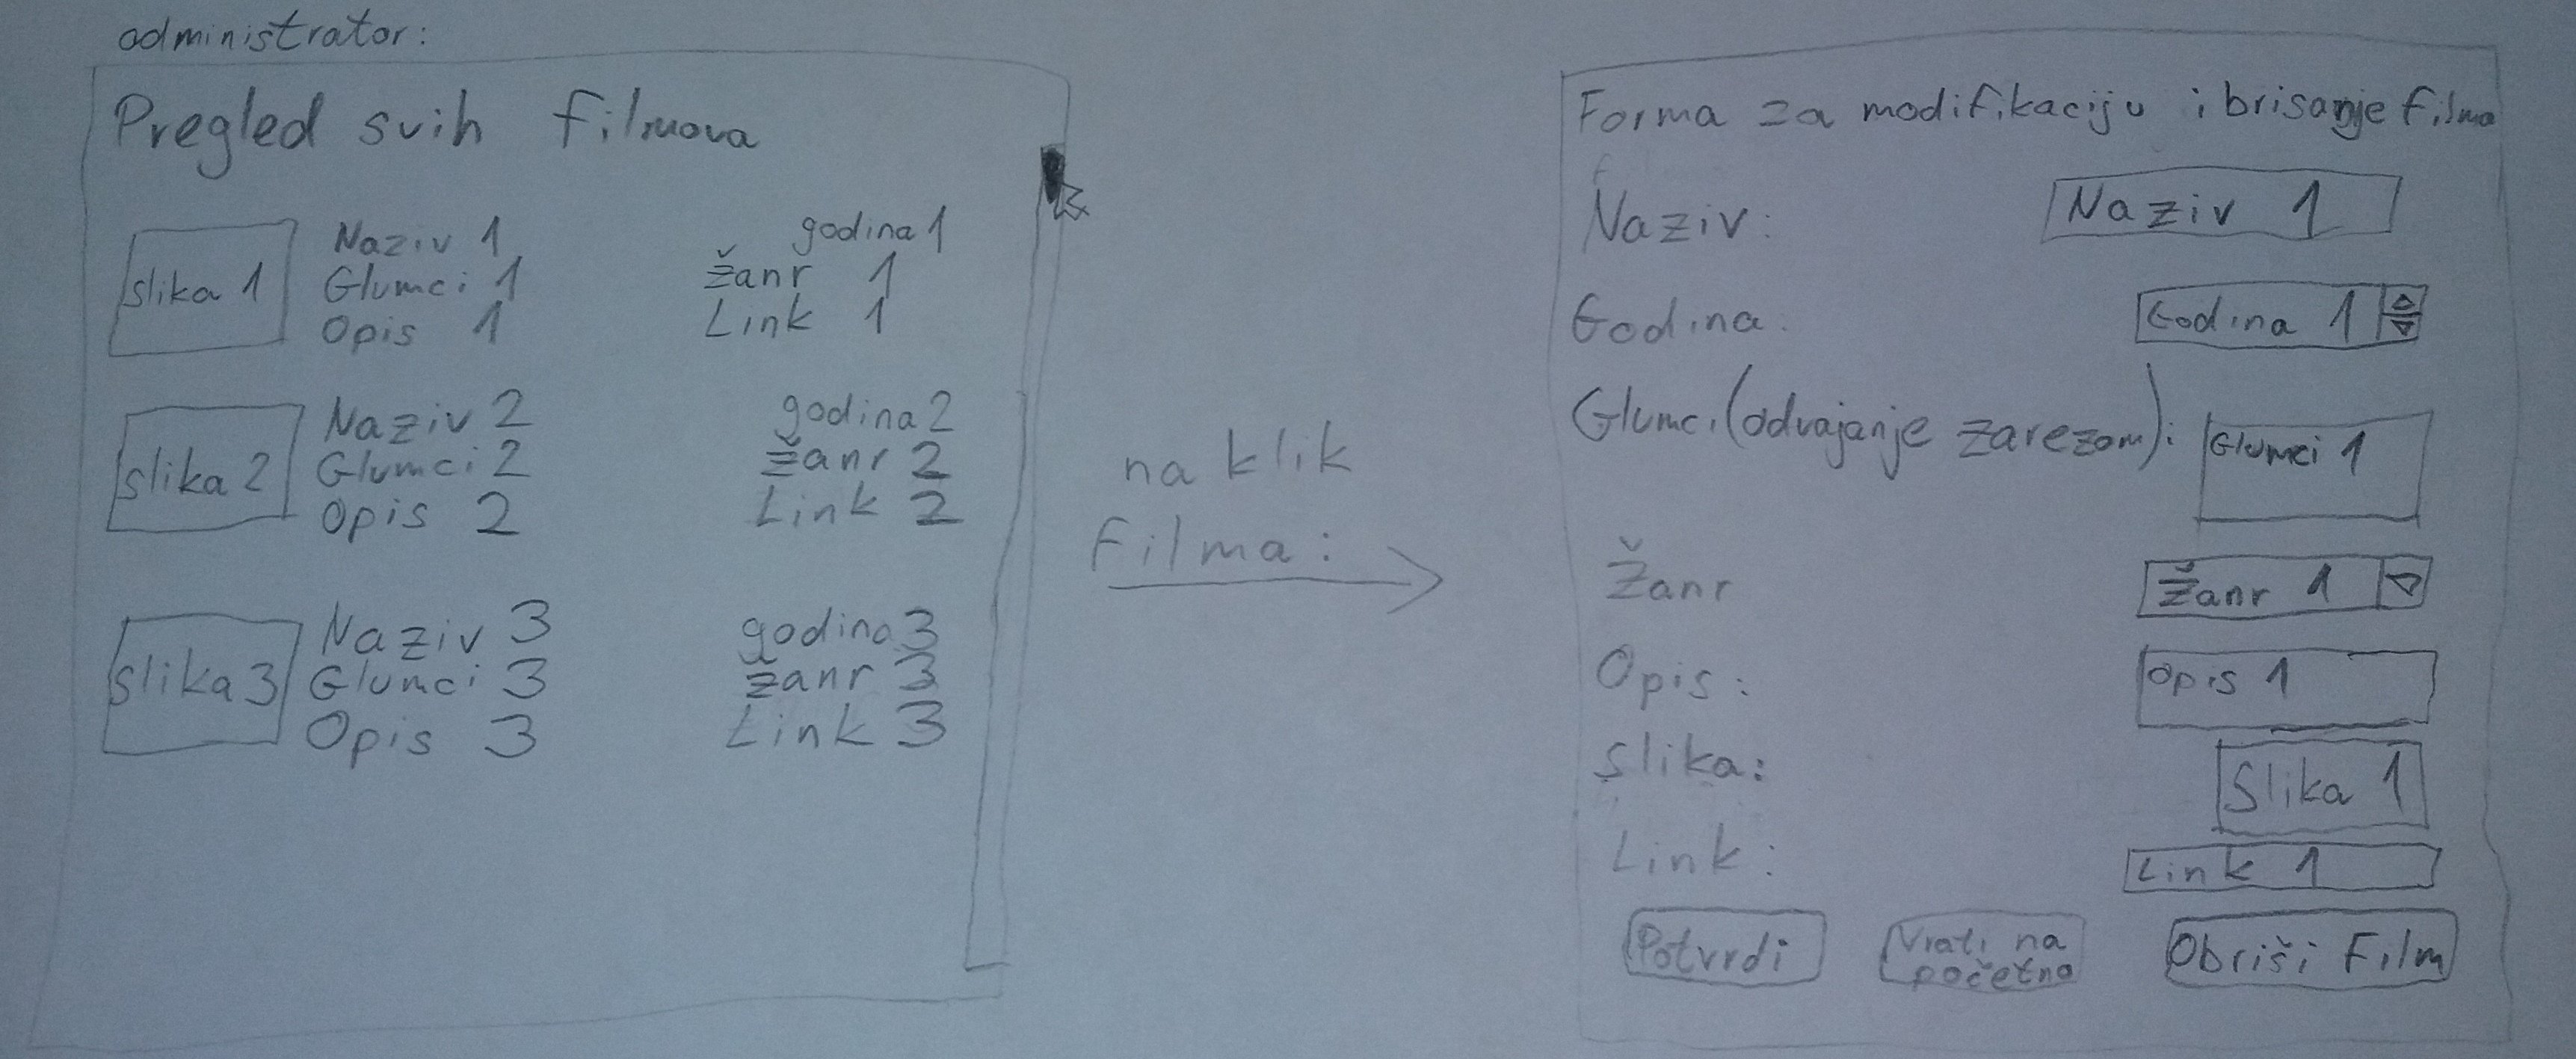 administrator:
Pregled svih filmova
slika 1
Naziv 1
Glumci 1
Opis 1
godina 1
žanr 1
Link 1
slika 2
Naziv 2
Glumci 2
Opis 2
godina 2
žanr 2
Link 2
slika 3
Naziv 3
Glumci 3
Opis 3
godina 3
žanr 3
Link 3
na klik
filma:
Forma za modifikaciju i brisanje filma
Naziv: Naziv 1
Godina: Godina 1
Glumci (odvajanje zarezom): Glumci 1
Žanr Žanr 1
Opis: Opis 1
Slika: Slika 1
Link: Link 1
Potvrdi
Vrati na
početno
Obriši Film